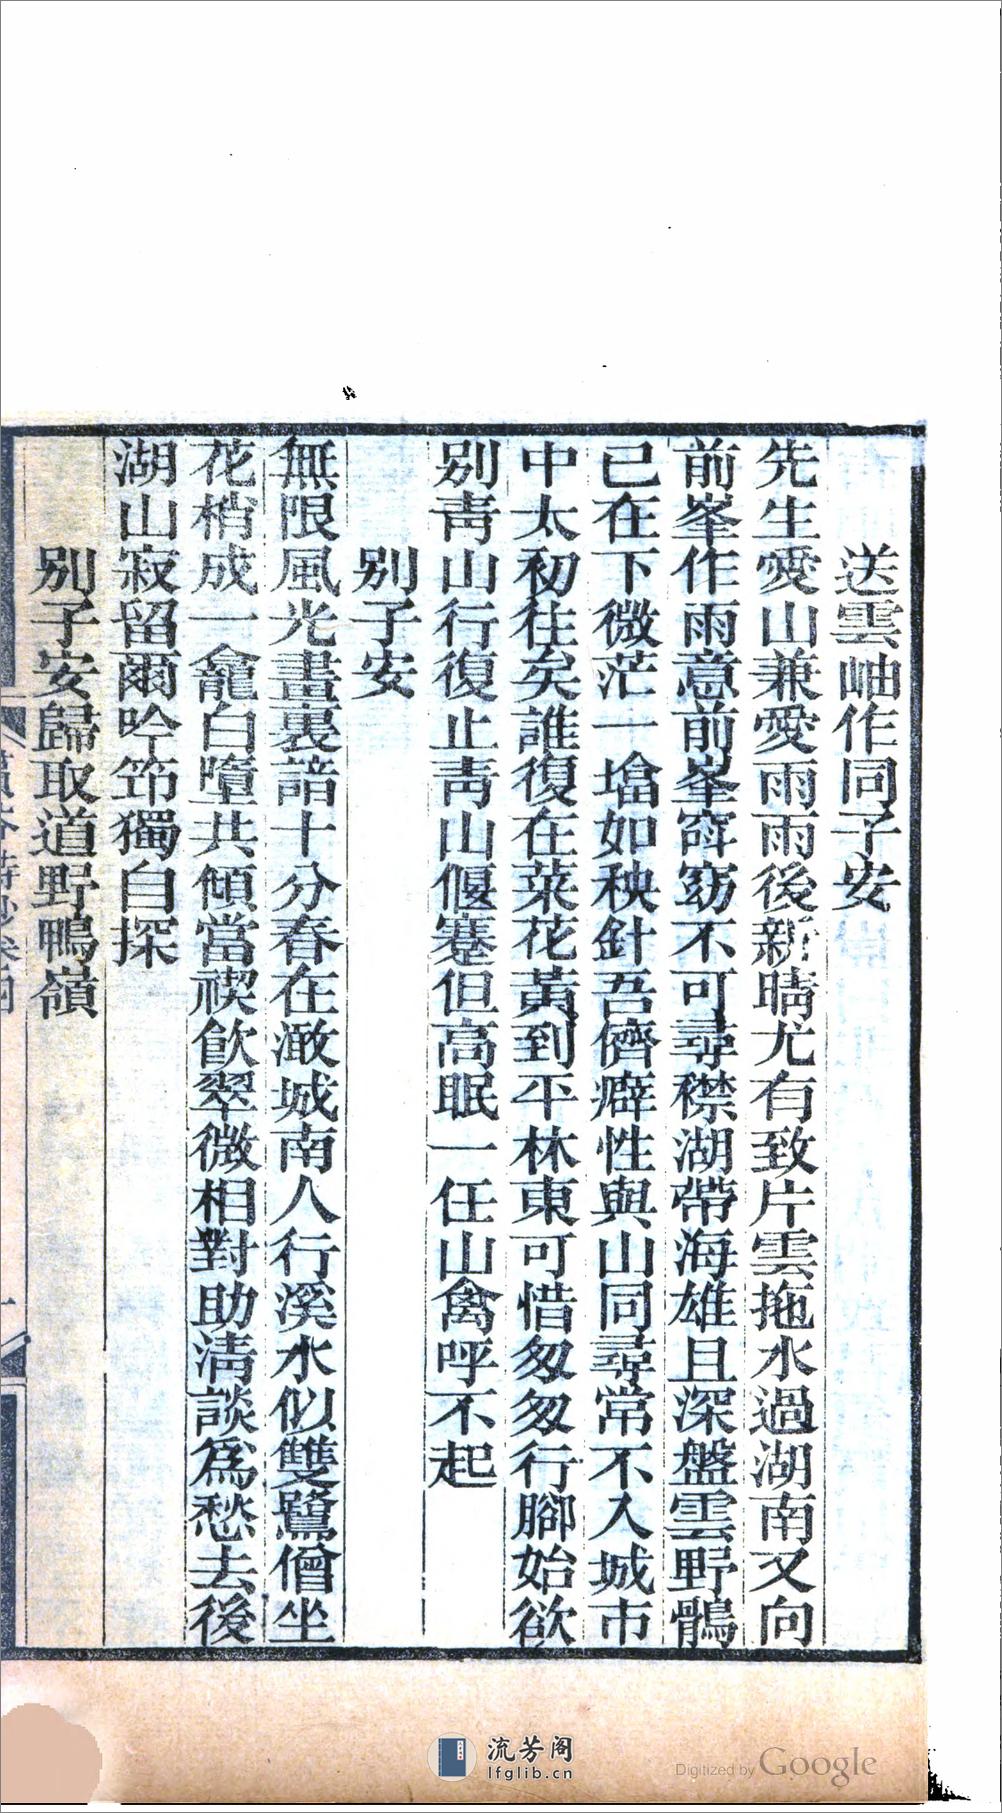 送雲岫作同子安
先生愛山兼愛雨雨後新晴尤有致片雲拖水過湖南又向
前峯作雨意前峯窅窈不可尋襟湖帶海雄且深盤雲野鶻
已在下微茫一墖如秧針吾儕癖性與山同尋常不入城市
中太初往矣誰復在菜花黃到平林東可惜匆匆行腳始欲
別靑山行復止靑山偃蹇但高眠一任山禽呼不起
別子安
無限風光畫裏諳十分春在澉城南人行溪水似雙鷺僧坐
花梢成一龕白墮共傾當禊飮翠微相對助淸談爲愁去後
湖山寂留爾吟笻獨自探
別子安歸取道野鴨嶺
流芳阁
lfglib.cn
Digitized by Google